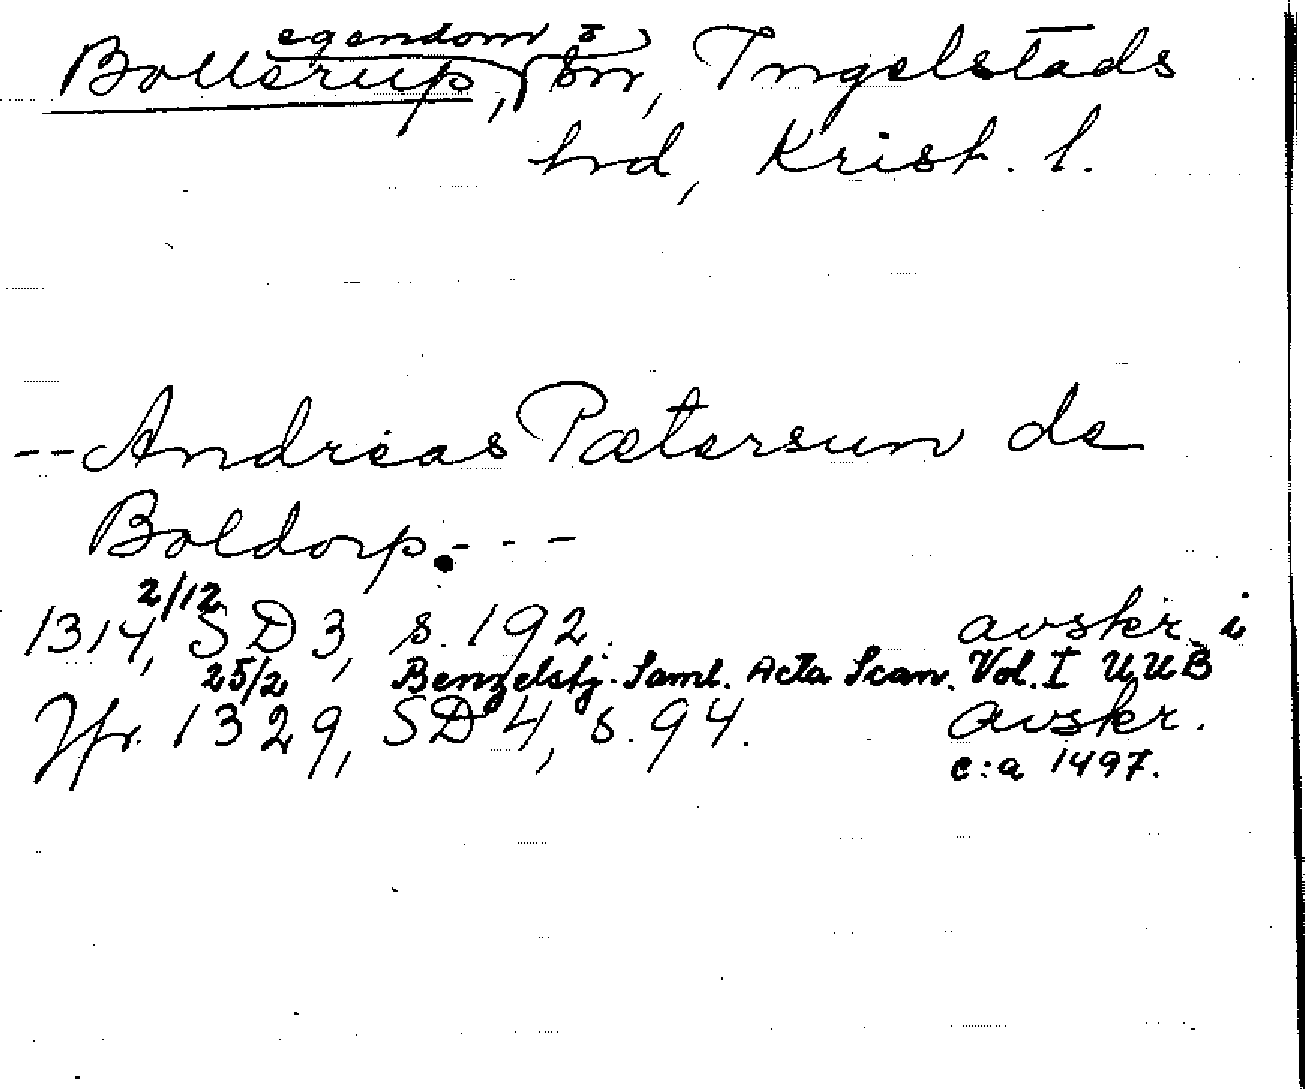 egendom i
Bollerup, sn, Ingelstads
hrd, Krist. l.
-- Andreas Pætersun de
Boldorp. - - -
2/12
1314, SD 3, s. 192. avskr. i
25/2 Benzelstj. Saml. Acta Scan. Vol. I UUB
Jfr. 1329, SD 4, s. 94. avskr.
c:a 1497.